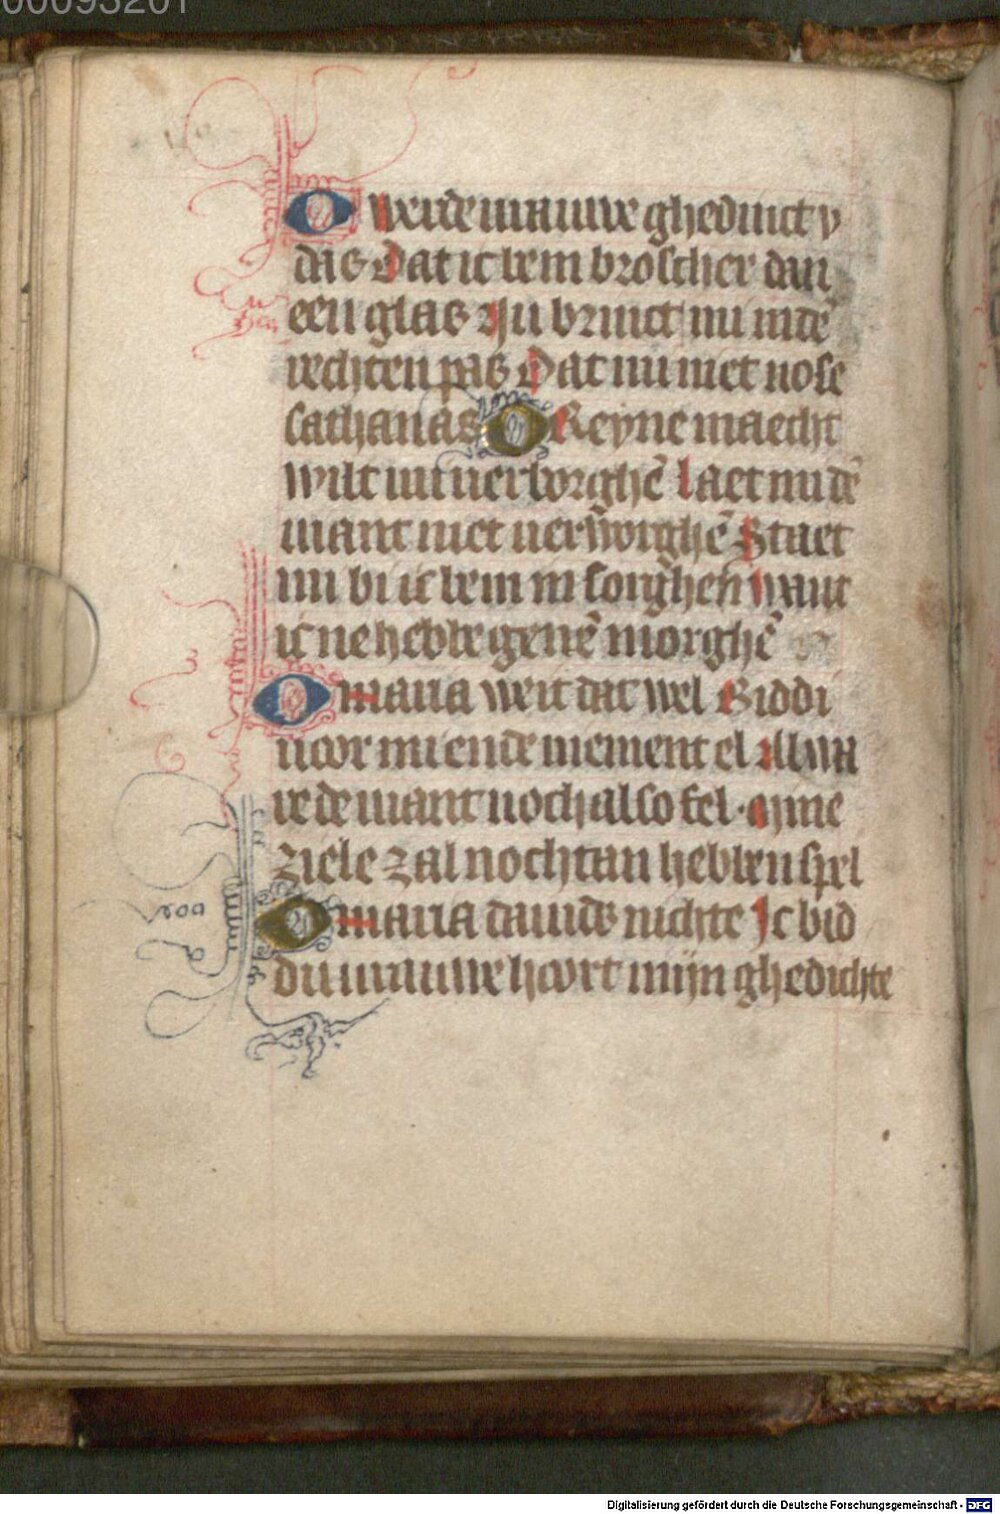 00093201
O werde urauwe ghedinct y
das Dat ic bem broscher dan
een glas Nu brinct mi indē
rechten pas Dat mi niet nose
sathanas O Reyne maecht
wilt mi uerborghē Laet mi dē
uiant niet uerworghē Staet
mi bi ic bem in sorghen want
ic ne hebbe geenē morghē
O maria weit dat wel Biddi
uoor mi ende niement el
rede uiant noch also fel · mine
ziele zal nochtan hebben spel
O maria dauids nichte Ic bid
du urauwe hoort mijn ghedichte
Digitalisierung gefördert durch die Deutsche Forschungsgemeinschaft - DFG